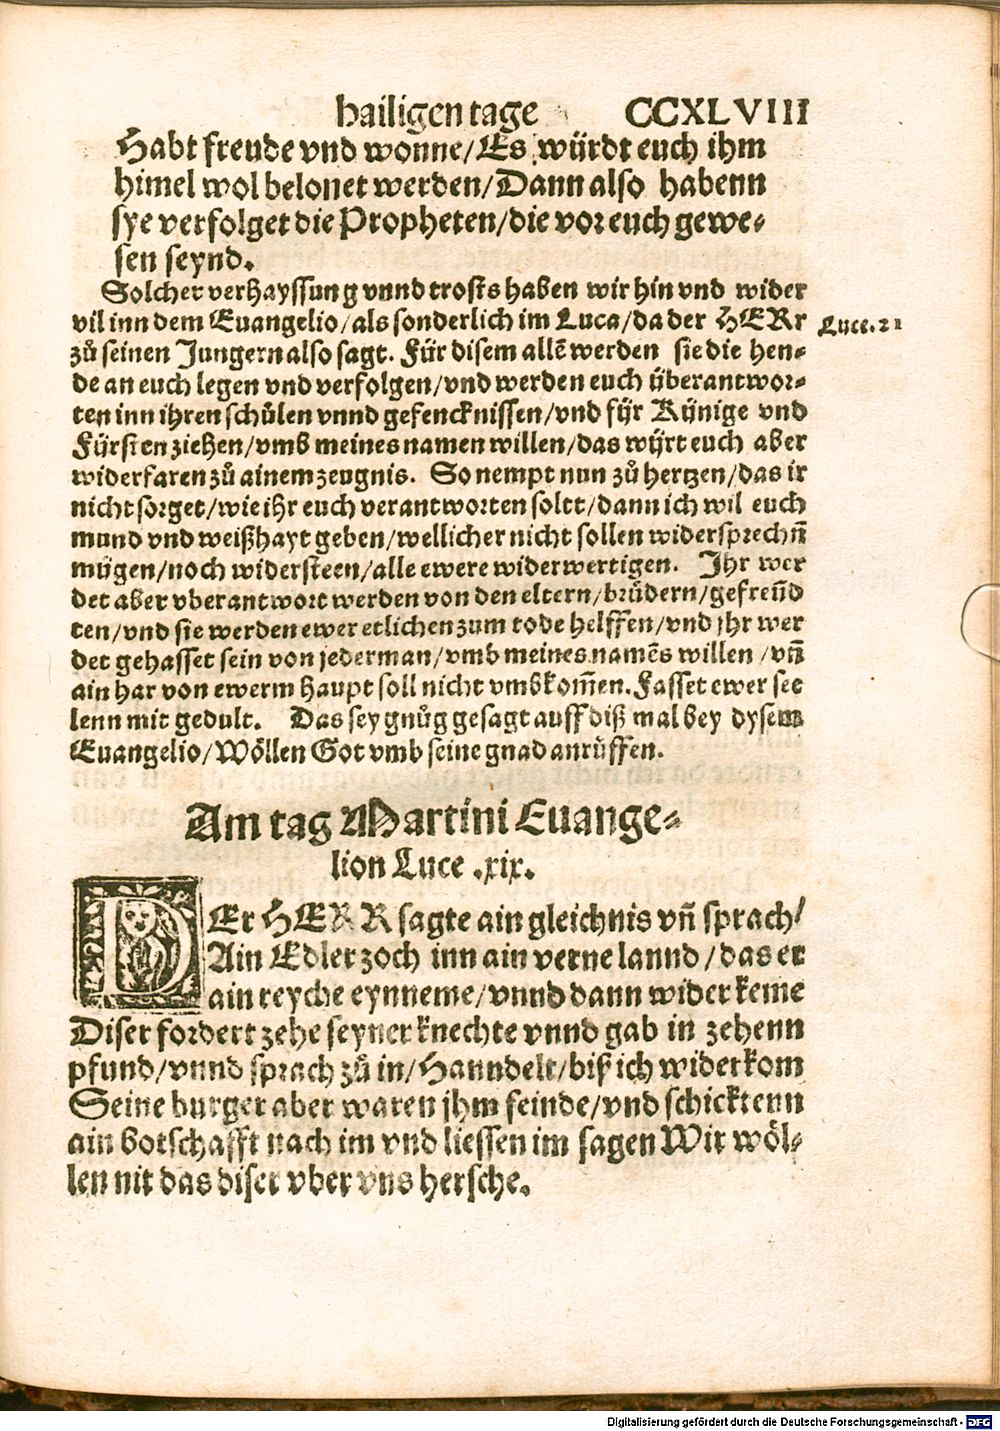 hailigen tage CCXLVIII
Habt freude vnd wonne/Es würdt euch ihm
himel wol belonet werden/Dann also habenn
sye verfolget die Propheten/die vor euch gewe⸗
sen seynd.
Solcher verhayssung vnnd trosts haben wir hin vnd wider
vil inn dem Euangelio/als sonderlich im Luca/da der HERr
zů seinen Jungern also sagt. Für disem allē werden sie die hen⸗
de an euch legen vnd verfolgen/vnd werden euch überantwor⸗
ten inn ihren schůlen vnnd gefencknissen/vnd für Künige vnd
Fürsten ziehen/vmb meines namen willen/das würt euch aber
widerfaren zů ainem zeugnis. So nempt nun zů hertzen/das ir
nicht sorget/wie ihr euch verantworten soltt/dann ich wil euch
mund vnd weißhayt geben/wellicher nicht sollen widersprechn̄
mügen/noch widersteen/alle ewere widerwertigen. Ihr wer
det aber vberantwort werden von den eltern/brüdern/gefreūd
ten/vnd sie werden ewer etlichen zum tode helffen/vnd jhr wer
det gehasset sein von jederman/vmb meines namēs willen/vn̄
ain har von ewerm haupt soll nicht vmbkom̄en. Fasset ewer see
lenn mit gedult. Das sey gnůg gesagt auff diß mal bey dysem
Euangelio/Wöllen Got vmb seine gnad anrůffen.
Luce. 21
Am tag Martini Euange⸗
lion Luce .xix.
DEr HERR sagte ain gleichnis vn̄ sprach/
Ain Edler zoch inn ain verne lannd/das er
ain reyche eynneme/vnnd dann wider keme
Diser fordert zehe seyner knechte vnnd gab in zehenn
pfund/vnnd sprach zů in/Hanndelt/biß ich widerkom
Seine burger aber waren jhm feinde/vnd schicktenn
ain botschafft nach im vnd liessen im sagen Wir wöl⸗
len nit das diser vber vns hersche.
Digitalisierung gefördert durch die Deutsche Forschungsgemeinschaft - DFG